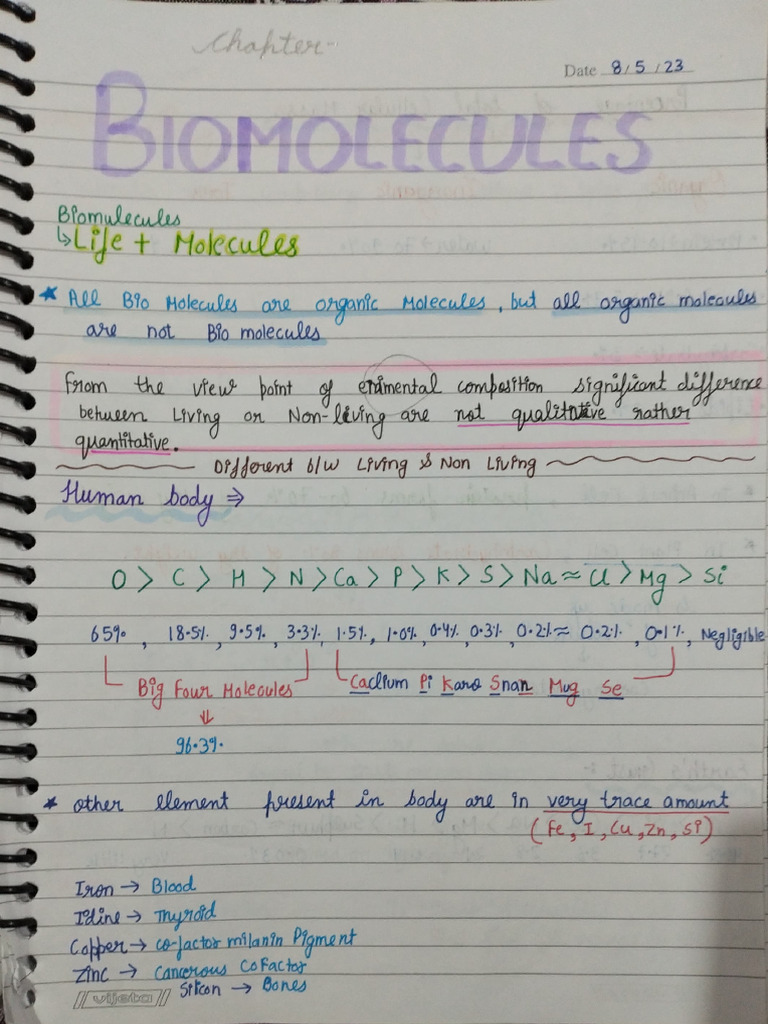 Chapter-
Date 8/5/23
BIOMOLECULES
Biomulecules
↳Life + Molecules
* All Bio Molecules are organic Molecules, but all organic molecules
are not Bio molecules
From the view point of enimental composition significant difference
between Living or Non-living are not qualitative rather
quantitative.
Different b/w Living & Non Living
Human body ⇒
O > C > H > N > Ca > P > K > S > Na ≈ Cl > Mg > Si
65%, 18.5%, 9.5%, 3.3%, 1.5%, 1.0%, 0.4%, 0.3%, 0.2% ≈ 0.2%, 0.1%, Negligible
Big Four Molecules
Caclium Pi Karo Snan Mug Se
⇓
96.3%
* other element present in body are in very trace amount
(Fe, I, Cu, Zn, Si)
Iron → Blood
Idine → Thyroid
Copper → co-factor milanin Pigment
Zinc → Cancerous CoFactor
Silicon → Bones
vijeta